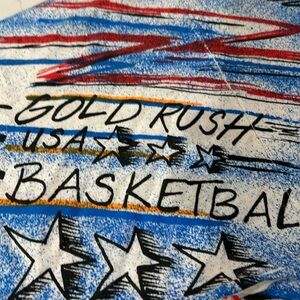 GOLD RUSH
USA
BASKETBAL